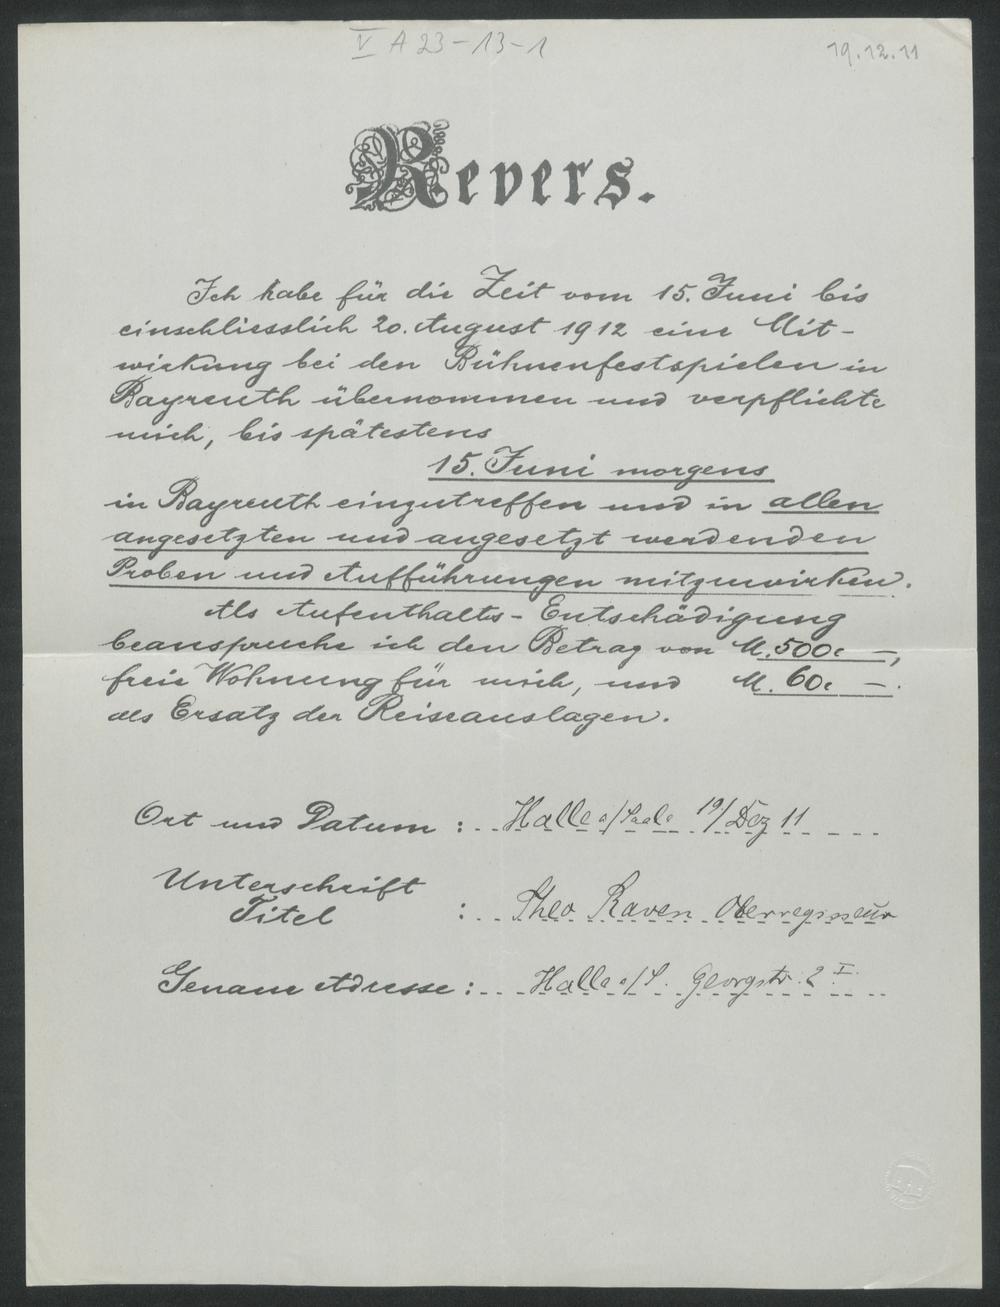 V A 23-13-1
19.12.11
Revers.
Ich habe für die Zeit vom 15. Juni bis
einschliesslich 20. August 1912 eine Mit-
wirkung bei den Bühnenfestspielen in
Bayreuth übernommen und verpflichte
mich, bis spätestens
15. Juni morgens
in Bayreuth einzutreffen und in allen
angesetzten und angesetzt werdenden
Proben und Aufführungen mitzuwirken.
Als Aufenthalts-Entschädigung
beanspruche ich den Betrag von M. 500. —,
freie Wohnung für mich, und M. 60. —.
als Ersatz der Reiseauslagen.
Ort und Datum : Halle a/Saale 19/Dez 11
Unterschrift
Titel : Theo Raven Oberregisseur
Genaue Adresse : Halle a/S. Georgstr. 2 I.